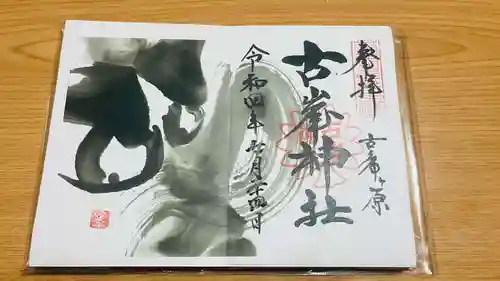 奉拝
古峯ヶ原
古峯神社
令和四年
月二十四日